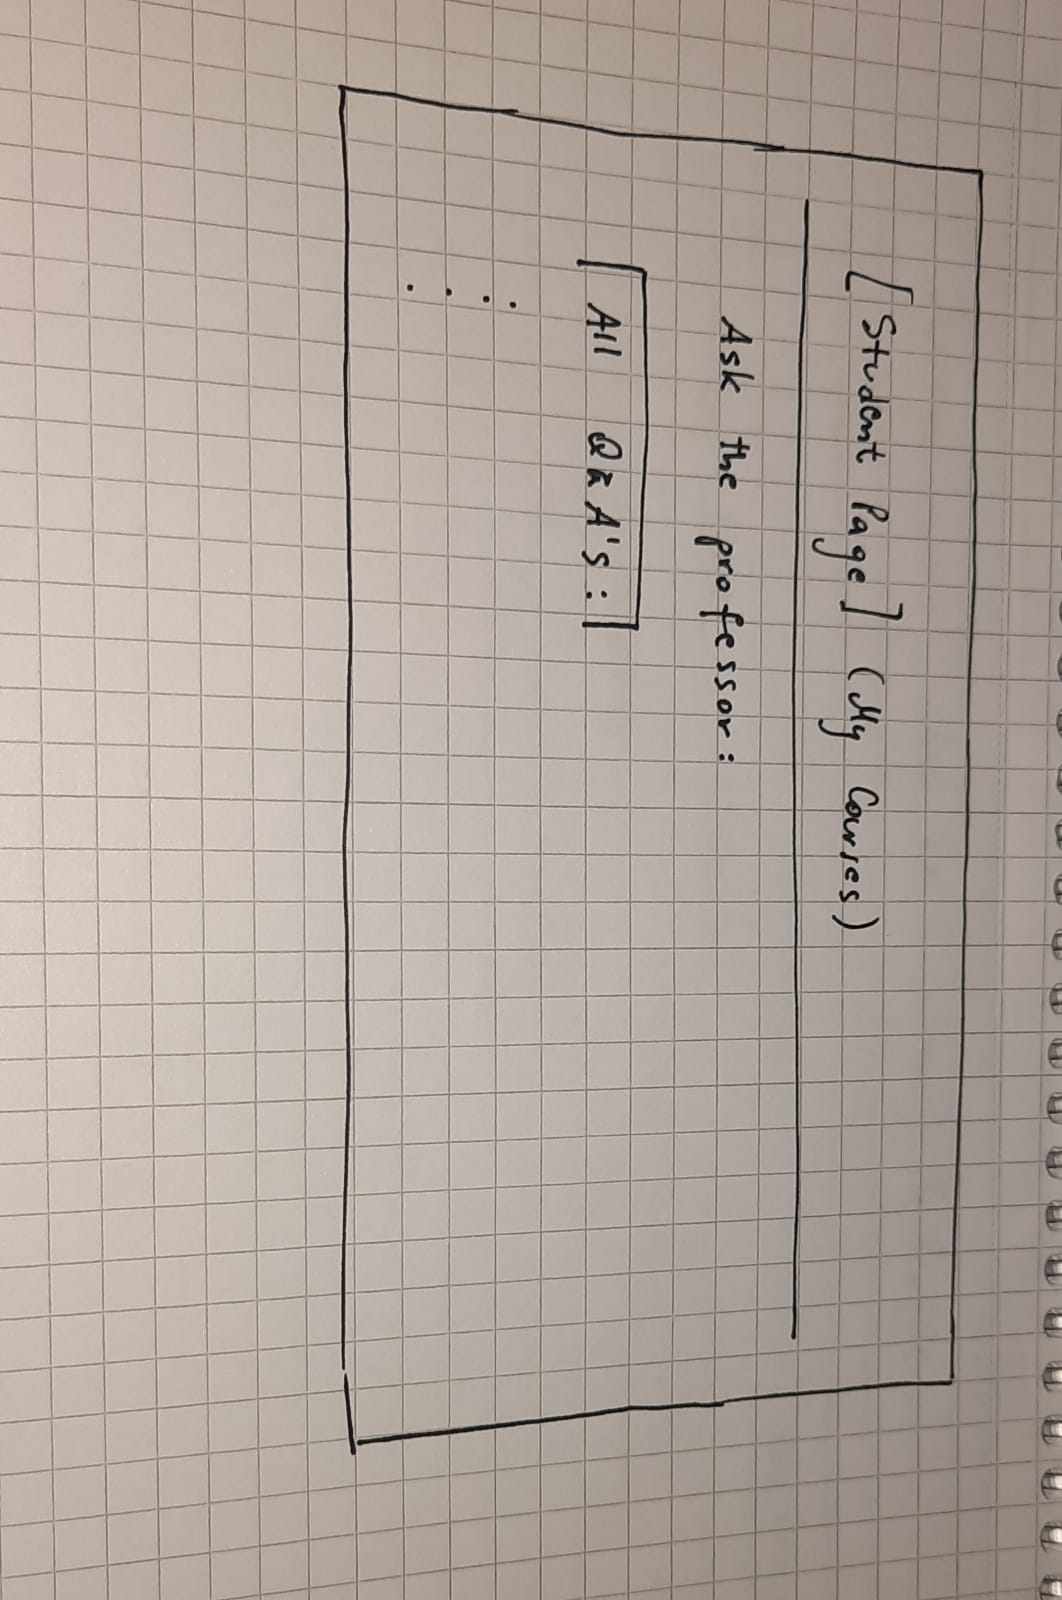 [Student Page] (My Courses)
Ask the professor:
All Q&A's: